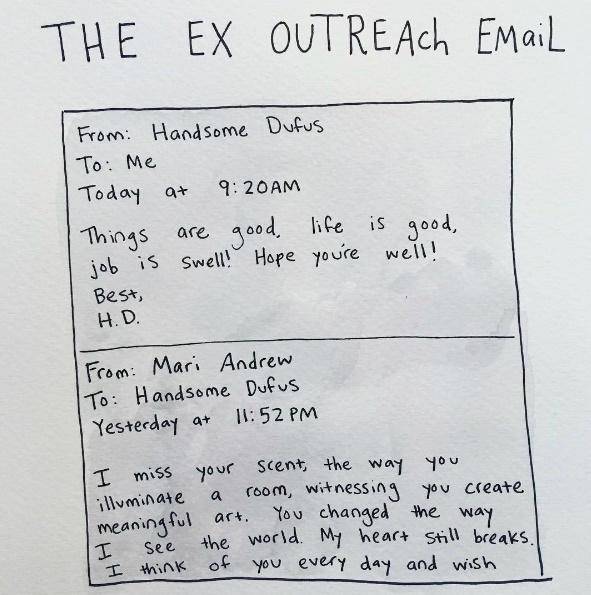 THE EX OUTREACh EMaiL
From: Handsome Dufus
To: Me
Today at 9:20AM
Things are good, life is good,
job is swell! Hope you're well!
Best,
H.D.
From: Mari Andrew
To: Handsome Dufus
Yesterday at 11:52 PM
I miss your scent, the way you
illuminate a room, witnessing you create
meaningful art. You changed the way
I see the world. My heart still breaks.
I think of you every day and wish